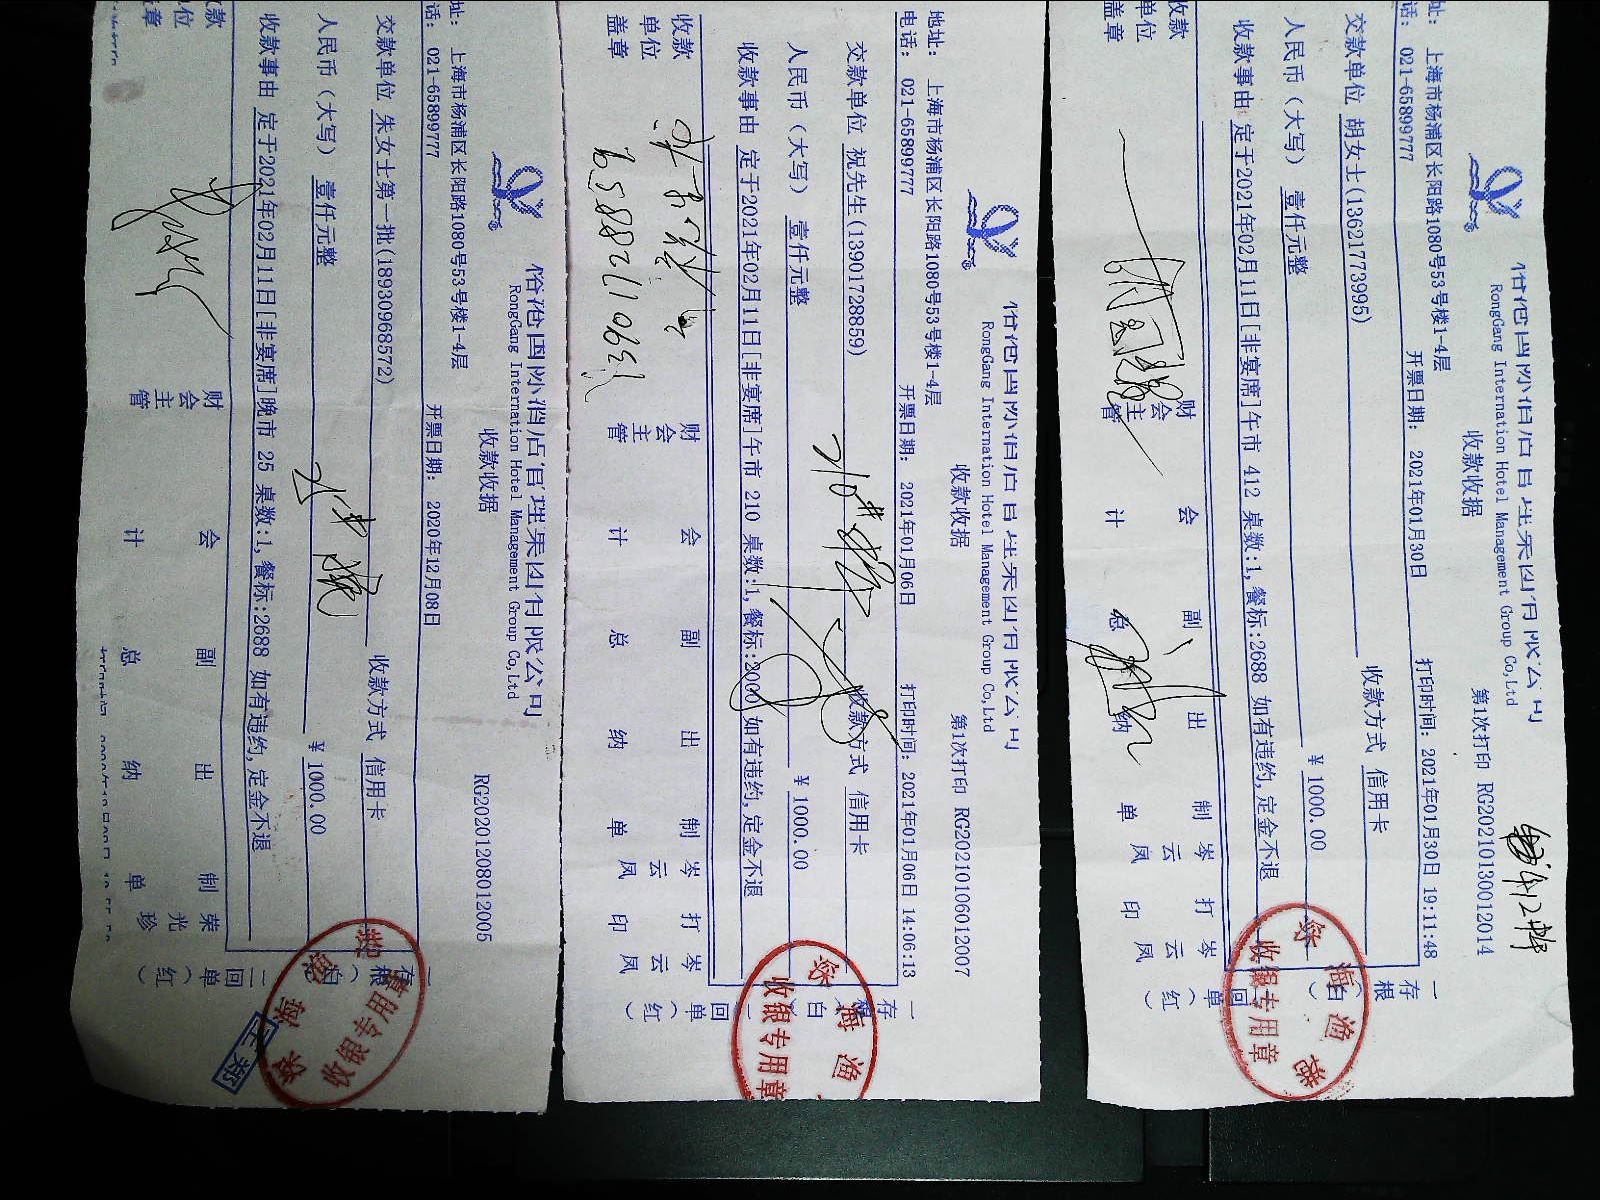 俗港国际酒店管理集团有限公司
RongGang International Hotel Management Group Co,Ltd
收款收据
RG20201208012005
址: 上海市杨浦区长阳路1080号53号楼1-4层
话: 021-65899777
开票日期: 2020年12月08日
交款单位 朱女士第一批(18930968572)
收款方式 信用卡
人民币(大写) 壹仟元整
¥ 1000.00
收款事由 定于2021年02月11日[非宴席]晚市 25 桌数:1,餐标:2688 如有违约,定金不退
款 位 章
财会主管
会计
副总
出纳
制单 荣光珍
一存根(白) 二回单(红)
收银专用章
RongGang International Hotel Management Group Co,Ltd
收款收据
第1次打印 RG20210106012007
地址: 上海市杨浦区长阳路1080号53号楼1-4层
电话: 021-65899777
开票日期: 2021年01月06日
打印时间: 2021年01月06日 14:06:13
交款单位 祝先生(13901728859)
收款方式 信用卡
人民币(大写) 壹仟元整
¥ 1000.00
收款事由 定于2021年02月11日[非宴席]午市 210 桌数:1,餐标:2000 如有违约,定金不退
收款单位盖章
财会主管
会计
副总
出纳
制单 岑云凤
打印 岑云凤
一存根(白) 二回单(红)
深海渔
收银专用章
13901728859
RongGang International Hotel Management Group Co,Ltd
收款收据
第1次打印 RG20210130012014
址: 上海市杨浦区长阳路1080号53号楼1-4层
话: 021-65899777
开票日期: 2021年01月30日
打印时间: 2021年01月30日 19:11:48
交款单位 胡女士(13621773995)
收款方式 信用卡
人民币(大写) 壹仟元整
¥ 1000.00
收款事由 定于2021年02月11日[非宴席]午市 412 桌数:1,餐标:2688 如有违约,定金不退
收款单位盖章
财会主管
会计
副总
出纳
制单 岑云凤
打印 岑云凤
一存根(白) 二回单(红)
深海渔港
收银专用章